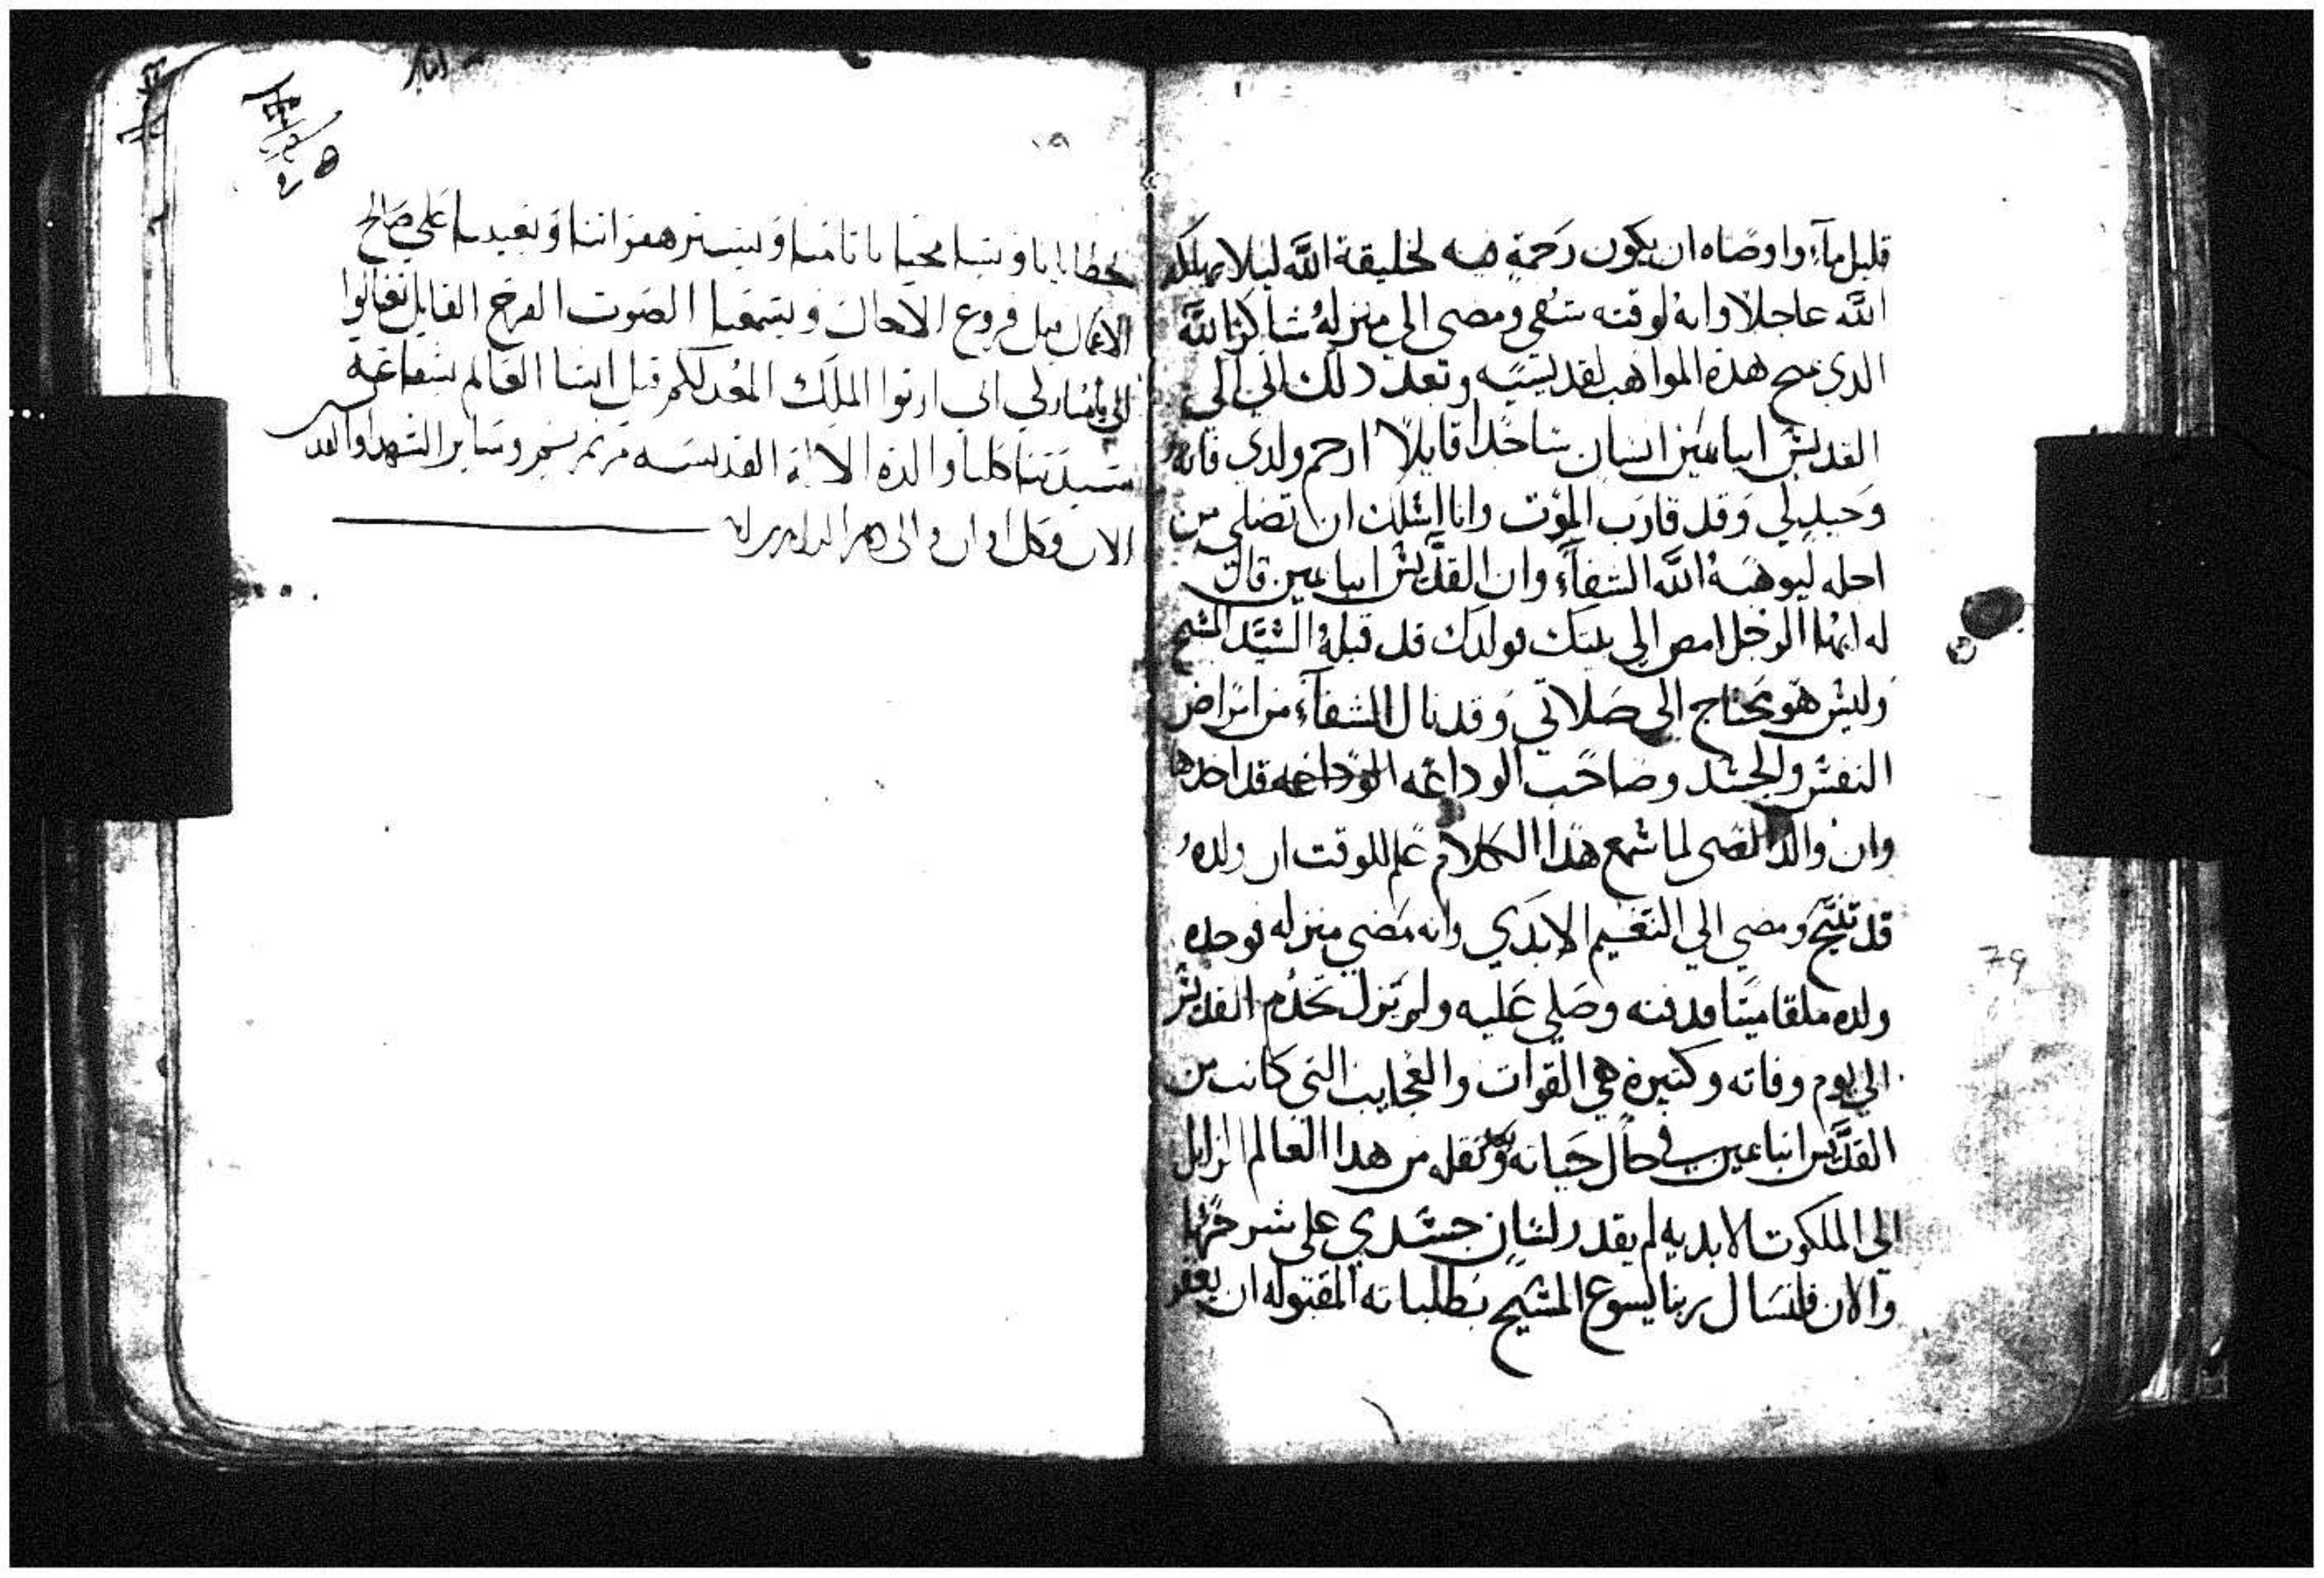 قليل ماء واوصاه ان يكون رحمة فيه لخليقة الله ليلا يهلكه
الله عاجلا وانه لوقته شفي ومضى الي منزله شاكرا لله
الدي منح هذه المواهب لقديسيه وبعد ذلك اتي الي
القديس انبا انسان ساجدا قايلا ارحم ولدي فانه
وحيد لي وقد قارب الموت وانا اسلك ان تصلي من
اجله ليوهبه الله الشفاء وان القديس انبا قال
له ايها الرجل امض الي بيتك فولدك قد قبله السيد المسيح
وليس هو يحتاج الى صلاتي وقد نال الشفاء من امراض
النفس والجسد وصاحب الوداعه الوداعه قد اخدها
وان والد الصبى لما سمع هدا الكلام علم للوقت ان ولده
قد تنيح ومضي الي النعيم الابدي وانه مضي منزله فوجد
ولده ملقا ميتا فدفنه وصلي عليه ولم يزل يخدم القديس
الي يوم وفاته وكتيرة هي القوات والعجايب التي كانت من
القديس انبا في حال حياته وبعد نقله من هدا العالم الزايل
الي الملكوت الابديه لم يقدر لسان جسدي على شرحها
والان فلنسال ربنا يسوع المسيح بطلباته المقبوله ان يغفر
خطايانا ويستر هفواتنا ويعيننا علي صالح
الاعمال قبل فروغ الاجال ويسمعنا الصوت الفرح القايل تعالوا
الي يا مباركي ابي ارتوا الملك المعد لكم قبل انشا العالم بشفاعة
سيدتنا كلنا والدة الاله القديسه مرتمريم وساير الشهدا والقد
الان وكل اوان والى دهر الداهرين
79